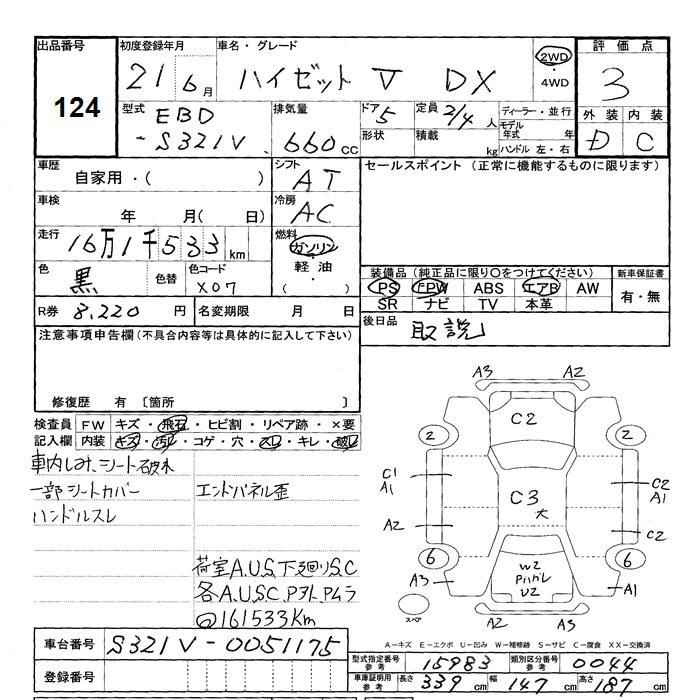 出品番号
124
初度登録年月
21 6月
車名・グレード
ハイゼット V DX
2WD
・
4WD
評価点
3
外装 内装
D C
型式
EBD
-S321V
排気量
660cc
ドア
5
形状
定員
2/4人
積載
kg
ディーラー・並行
モデル年式 年
ハンドル 左・右
車歴
自家用・( )
シフト
AT
車検
年 月(日)
冷房
AC
走行
16万1千533km
燃料
ガソリン
・
軽油
・
( )
色
黒
色替
色コード
X07
R券 8,220円
名変期限 月 日
セールスポイント (正常に機能するものに限ります)
装備品(純正品に限り○をつけてください)
PS FPW ABS エアB AW
SR ナビ TV 本革
新車保証書
有・無
後日品
取説
注意事項申告欄(不具合内容等は具体的に記入して下さい)
修復歴 有 〔箇所 〕
検査員記入欄
FW キズ・飛石・ヒビ割・リペア跡・×要
内装 キズ・汚レ・コゲ・穴・スレ・キレ・破レ
車内しみ、シート破れ
一部シートカバー
ハンドルスレ
エンドパネル歪
荷室A.U.S、下廻りS.C
各A.U.S.C.Pヌケ、Pムラ
@161533Km
A3 A2
C2
2 2
C1
A1
C3
大
C2
A1
A2
C2
6 6
A3
W2
Pハガレ
U2
A1
スペア
A2 A3
A-キズ E-エクボ U-凹み W-補修跡 S-サビ C-腐食 XX-交換済
車台番号 S321V-0051175
登録番号
型式指定番号 参考 15983
類別区分番号 参考 0044
車庫証明用 参考 長さ 339cm 幅 147cm 高さ 187cm